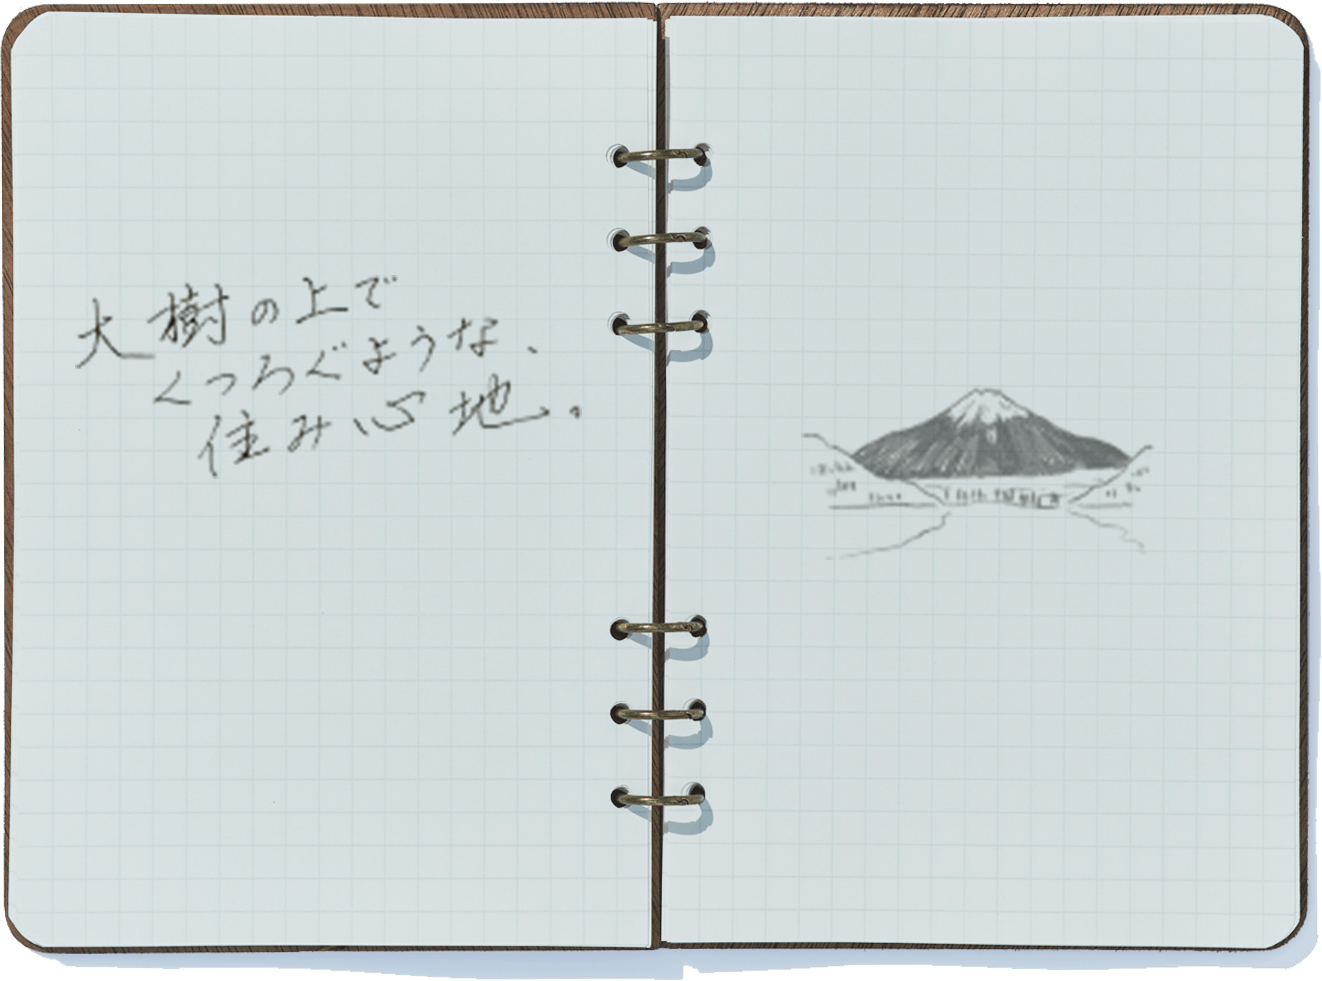 大樹の上で
くつろぐような、
住み心地。